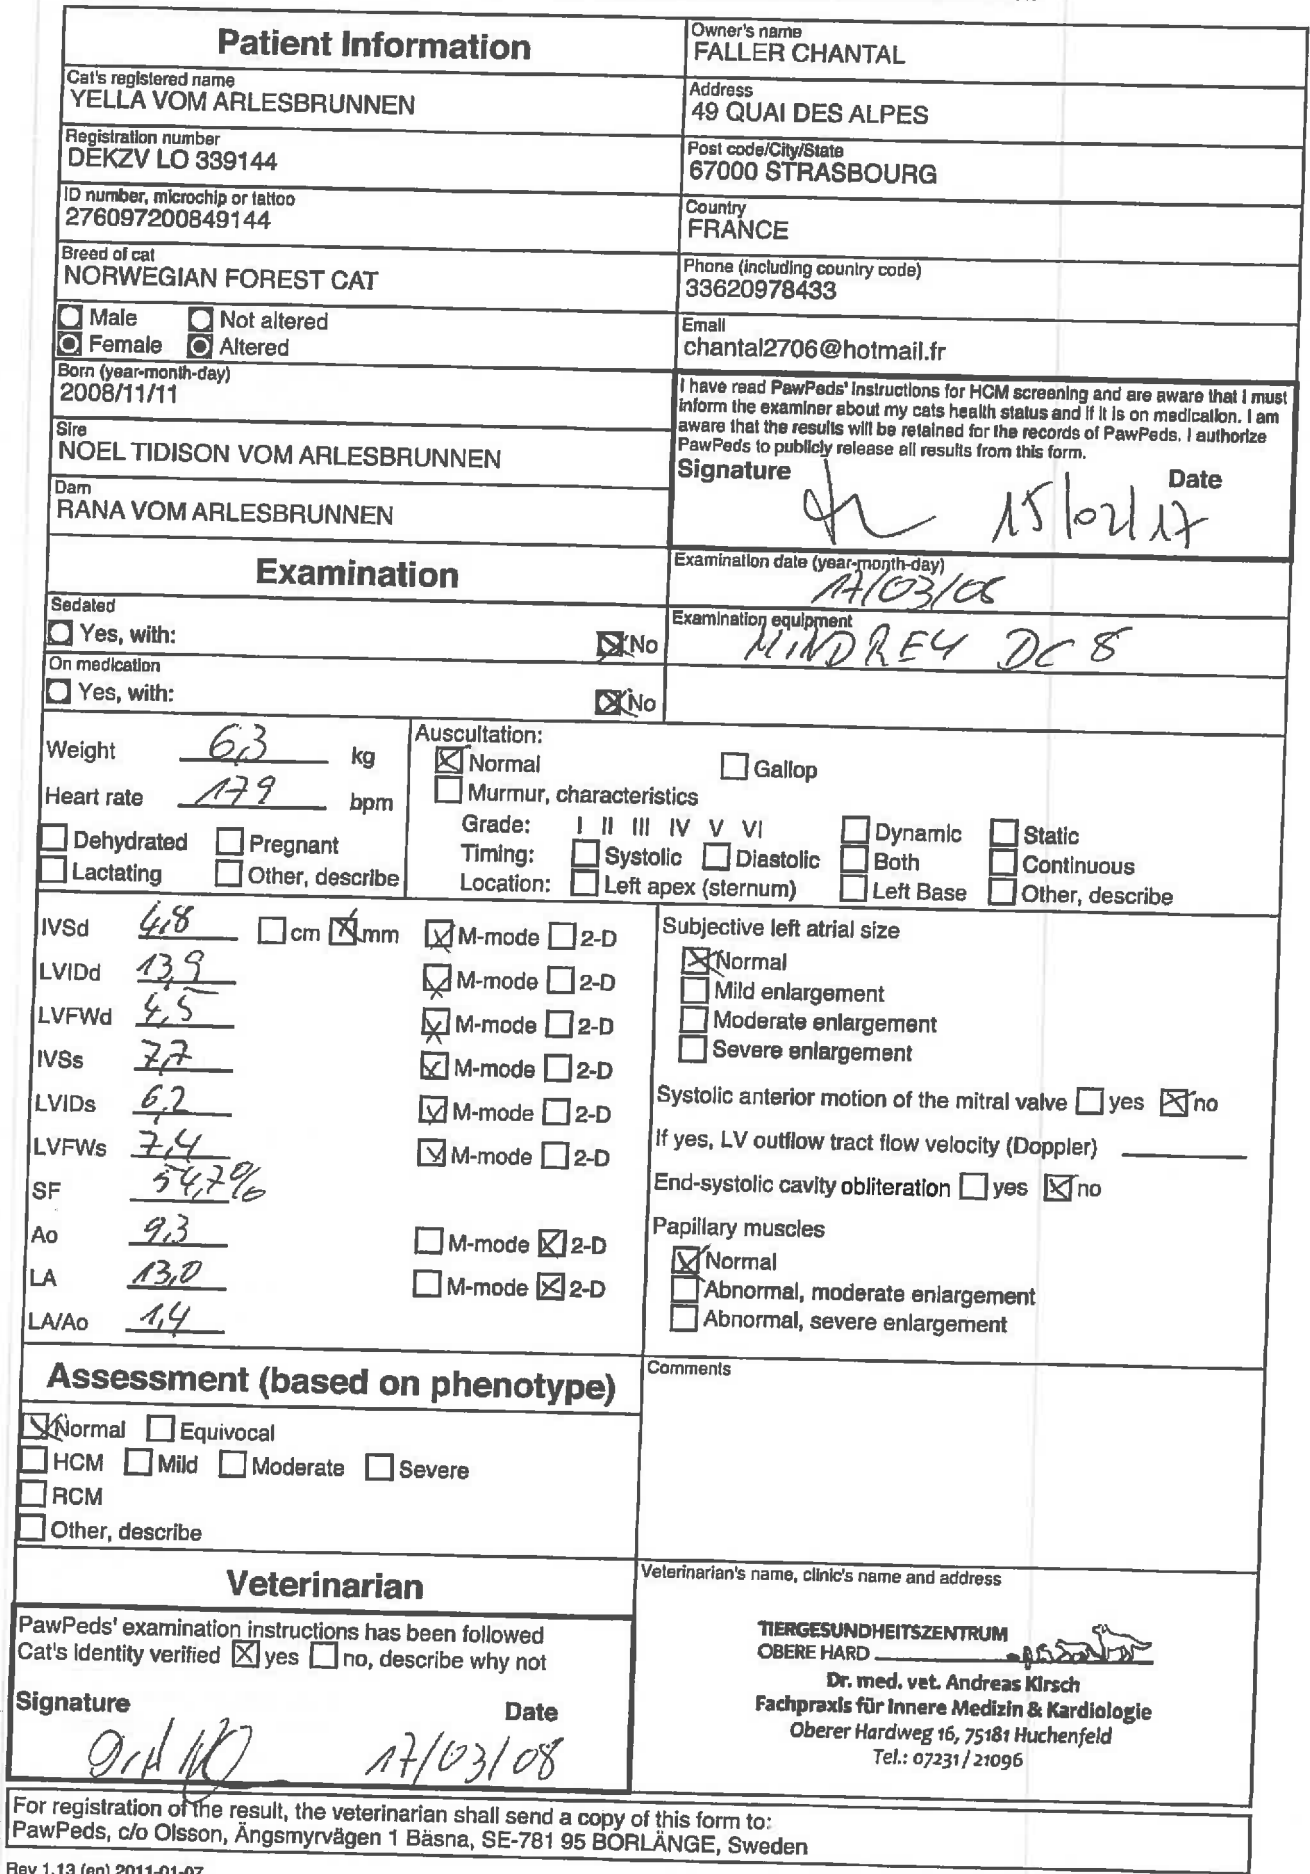 Patient Information
Owner's name
FALLER CHANTAL
Cat's registered name
YELLA VOM ARLESBRUNNEN
Address
49 QUAI DES ALPES
Registration number
DEKZV LO 339144
Post code/City/State
67000 STRASBOURG
ID number, microchip or tattoo
276097200849144
Country
FRANCE
Breed of cat
NORWEGIAN FOREST CAT
Phone (including country code)
33620978433
Male Not altered
Female Altered
Email
chantal2706@hotmail.fr
Born (year-month-day)
2008/11/11
I have read PawPeds' instructions for HCM screening and are aware that I must
inform the examiner about my cats health status and if it is on medication. I am
aware that the results will be retained for the records of PawPeds. I authorize
PawPeds to publicly release all results from this form.
Signature Date
15/02/17
Sire
NOEL TIDISON VOM ARLESBRUNNEN
Dam
RANA VOM ARLESBRUNNEN
Examination
Examination date (year-month-day)
17/03/08
Sedated
Yes, with: No
Examination equipment
MINDREY DC 8
On medication
Yes, with: No
Weight 6,3 kg
Heart rate 179 bpm
Dehydrated Pregnant
Lactating Other, describe
Auscultation:
Normal Gallop
Murmur, characteristics
Grade: I II III IV V VI Dynamic Static
Timing: Systolic Diastolic Both Continuous
Location: Left apex (sternum) Left Base Other, describe
IVSd 4,8 cm mm M-mode 2-D
LVIDd 13,9 M-mode 2-D
LVFWd 4,5 M-mode 2-D
IVSs 7,7 M-mode 2-D
LVIDs 6,2 M-mode 2-D
LVFWs 7,4 M-mode 2-D
SF 54,7%
Ao 9,3 M-mode 2-D
LA 13,0 M-mode 2-D
LA/Ao 1,4
Subjective left atrial size
Normal
Mild enlargement
Moderate enlargement
Severe enlargement
Systolic anterior motion of the mitral valve yes no
If yes, LV outflow tract flow velocity (Doppler)
End-systolic cavity obliteration yes no
Papillary muscles
Normal
Abnormal, moderate enlargement
Abnormal, severe enlargement
Assessment (based on phenotype)
Normal Equivocal
HCM Mild Moderate Severe
RCM
Other, describe
Comments
Veterinarian
PawPeds' examination instructions has been followed
Cat's identity verified yes no, describe why not
Signature Date
17/03/08
Veterinarian's name, clinic's name and address
TIERGESUNDHEITSZENTRUM
OBERE HARD
Dr. med. vet. Andreas Kirsch
Fachpraxis für Innere Medizin & Kardiologie
Oberer Hardweg 16, 75181 Huchenfeld
Tel.: 07231/21096
For registration of the result, the veterinarian shall send a copy of this form to:
PawPeds, c/o Olsson, Ängsmyrvägen 1 Bäsna, SE-781 95 BORLÄNGE, Sweden
Rev 1.13 (en) 2011-01-07